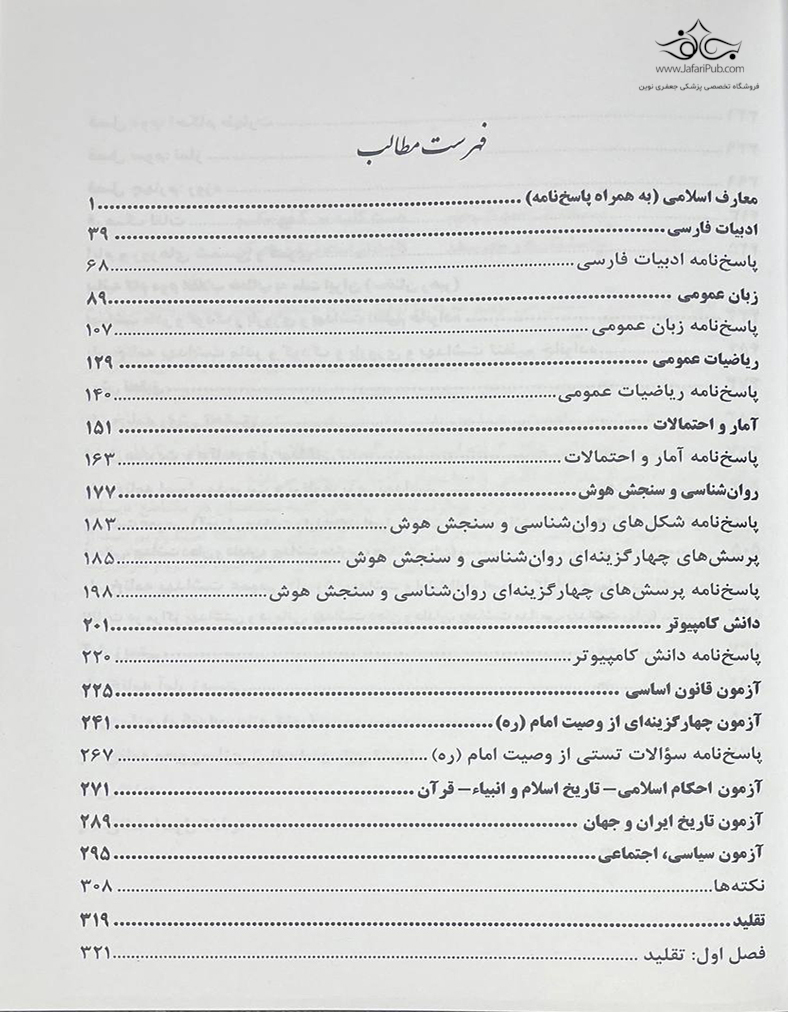 www.JafariPub.com
فروشگاه تخصصی پزشکی جعفری نوین
فهرست مطالب
معارف اسلامی (به همراه پاسخ‌نامه)........................۱
ادبیات فارسی........................۳۹
پاسخ‌نامه ادبیات فارسی........................۶۸
زبان عمومی........................۸۹
پاسخ‌نامه زبان عمومی........................۱۰۷
ریاضیات عمومی........................۱۲۹
پاسخ‌نامه ریاضیات عمومی........................۱۴۰
آمار و احتمالات........................۱۵۱
پاسخ‌نامه آمار و احتمالات........................۱۶۳
روان‌شناسی و سنجش هوش........................۱۷۷
پاسخ‌نامه شکل‌های روان‌شناسی و سنجش هوش........................۱۸۳
پرسش‌های چهارگزینه‌ای روان‌شناسی و سنجش هوش........................۱۸۵
پاسخ‌نامه پرسش‌های چهارگزینه‌ای روان‌شناسی و سنجش هوش........................۱۹۸
دانش کامپیوتر........................۲۰۱
پاسخ‌نامه دانش کامپیوتر........................۲۲۰
آزمون قانون اساسی........................۲۲۵
آزمون چهارگزینه‌ای از وصیت امام (ره)........................۲۴۱
پاسخ‌نامه سؤالات تستی از وصیت امام (ره)........................۲۶۷
آزمون احکام اسلامی– تاریخ اسلام و انبیاء– قرآن........................۲۷۱
آزمون تاریخ ایران و جهان........................۲۸۹
آزمون سیاسی، اجتماعی........................۲۹۵
نکته‌ها........................۳۰۸
تقلید........................۳۱۹
فصل اول: تقلید........................۳۲۱